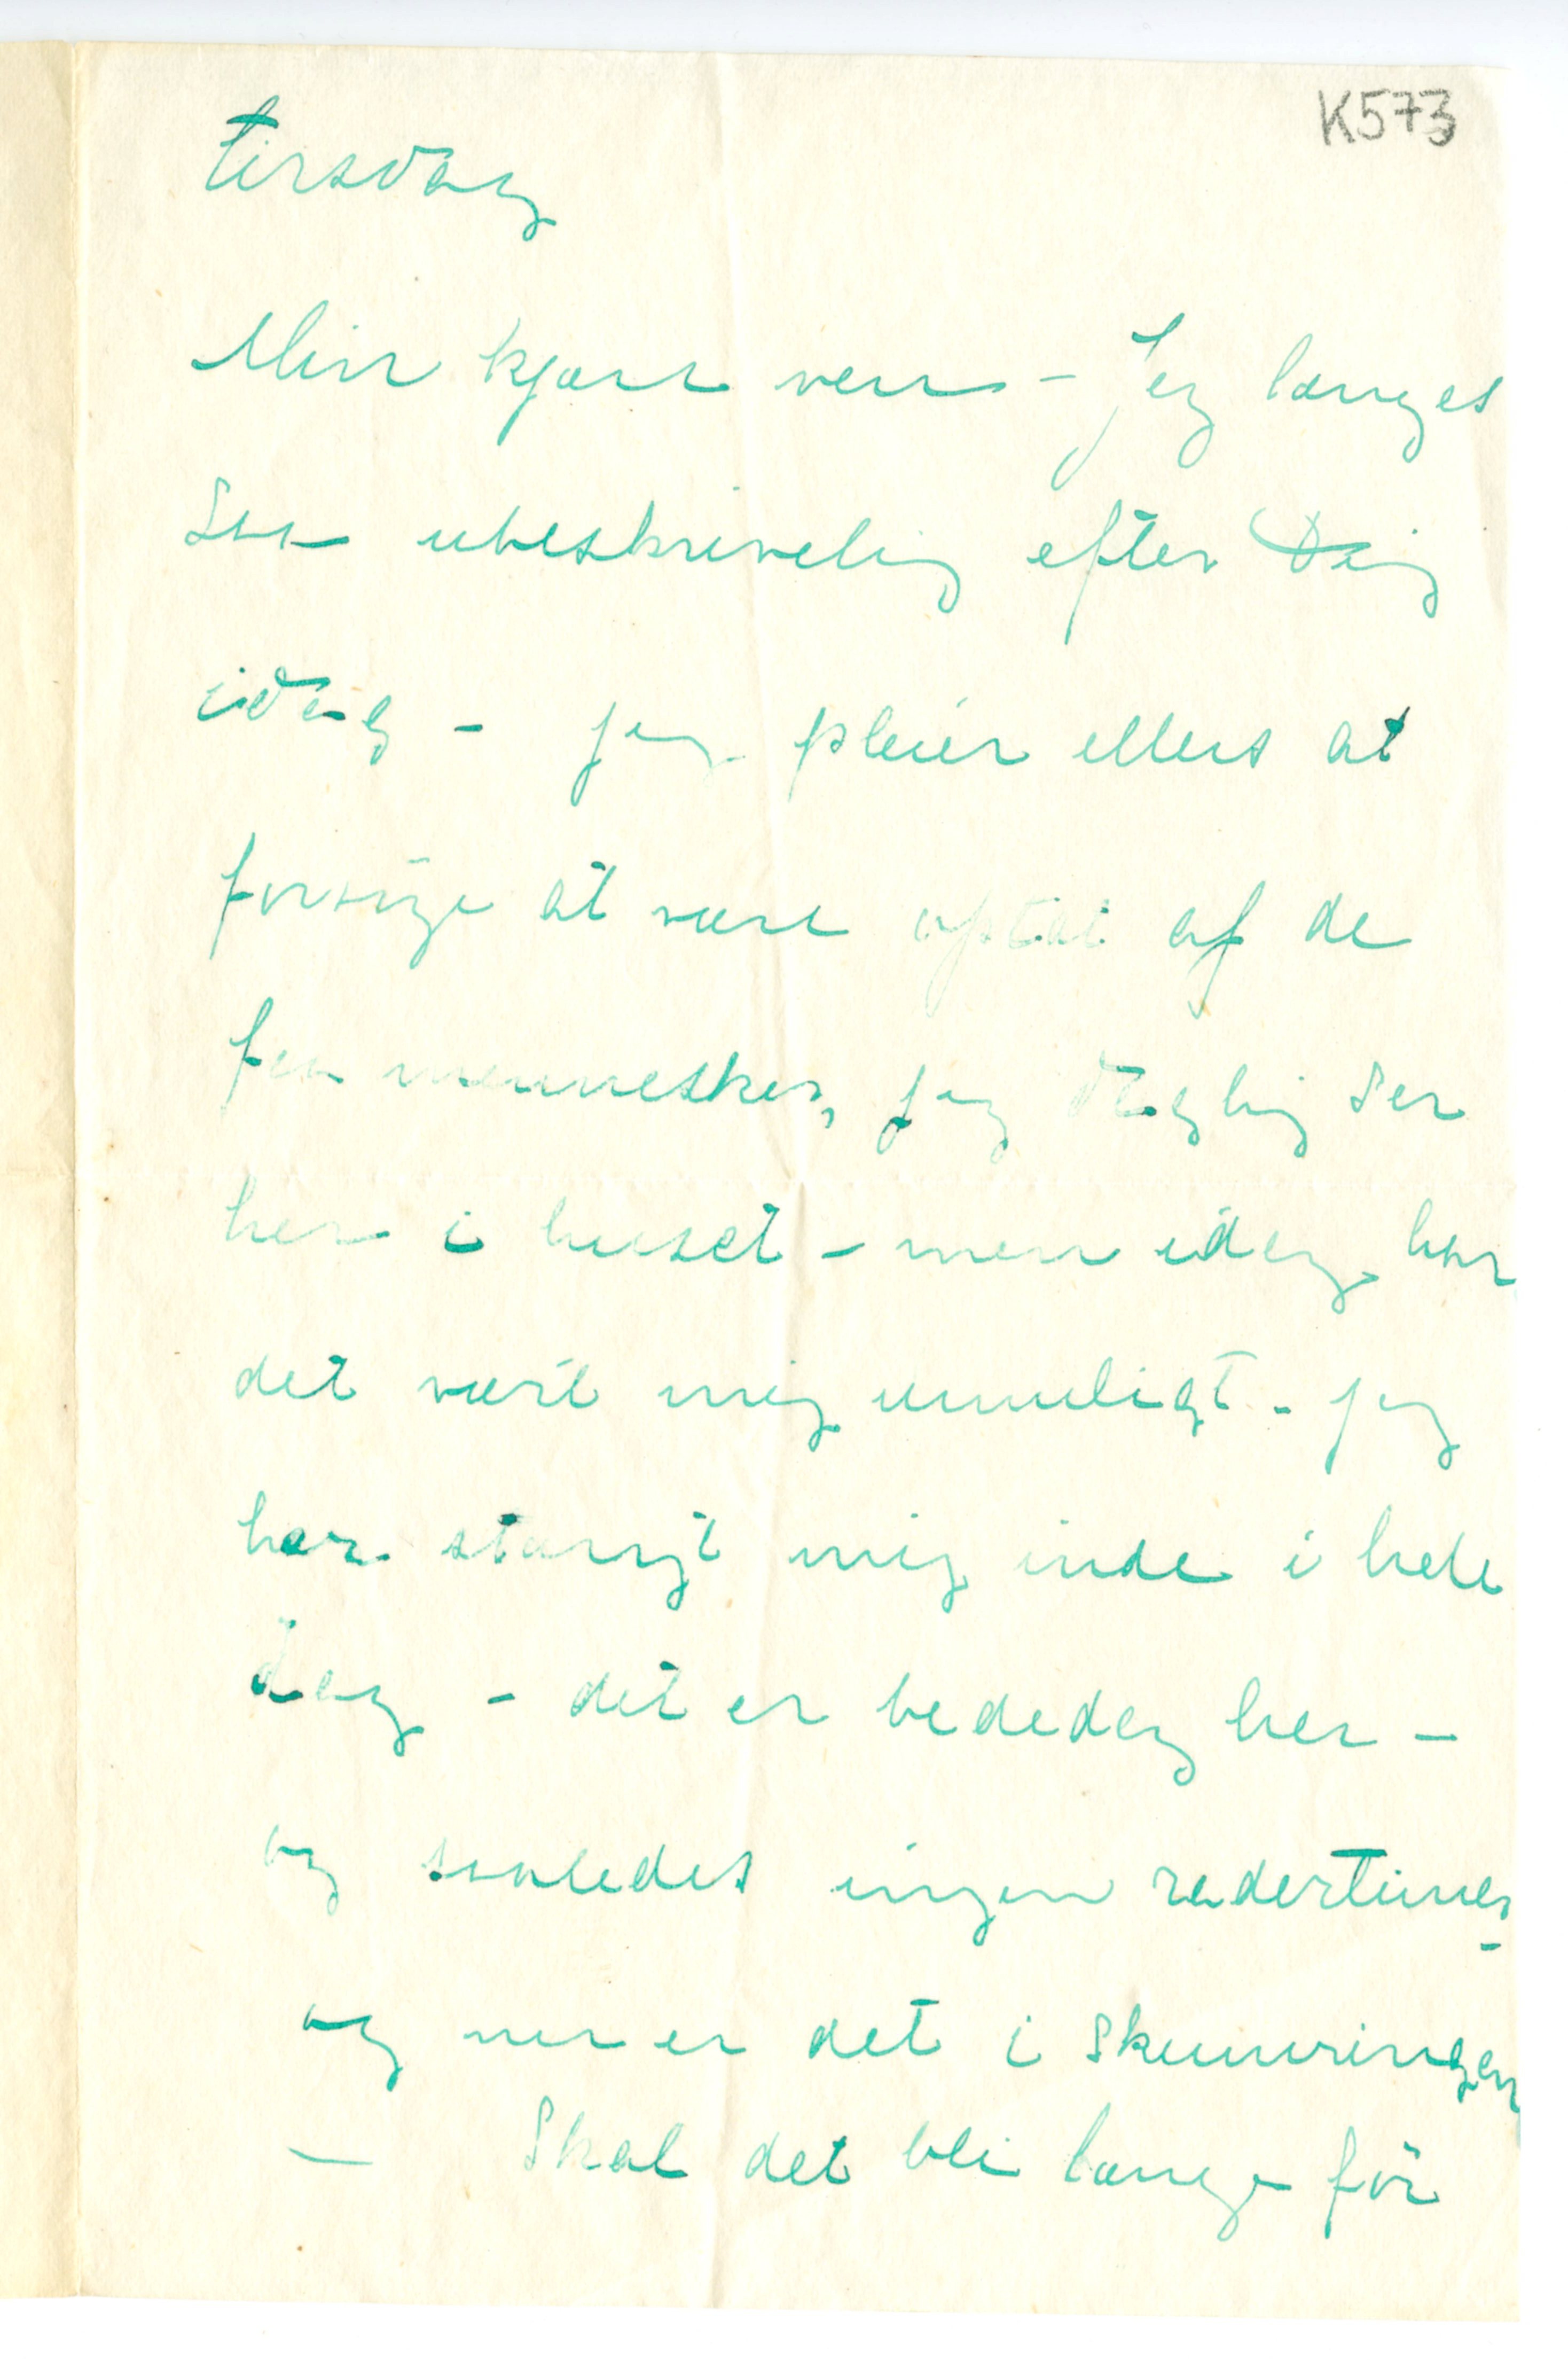 K573
Tirsdag
Min kjære ven – Jeg længes
saa ubeskrivelig efter Dig
idag – jeg pleier ellers at
forsöge at være optat af de
faa mennesker, jeg daglig ser
her i huset – men idag har
det vært mig umuligt – jeg
har stængt mig inde i hele
dag – det er bededag her –
og saaledes ingen radertimer –
og nu er det i skumringen
– Skal det bli længe för